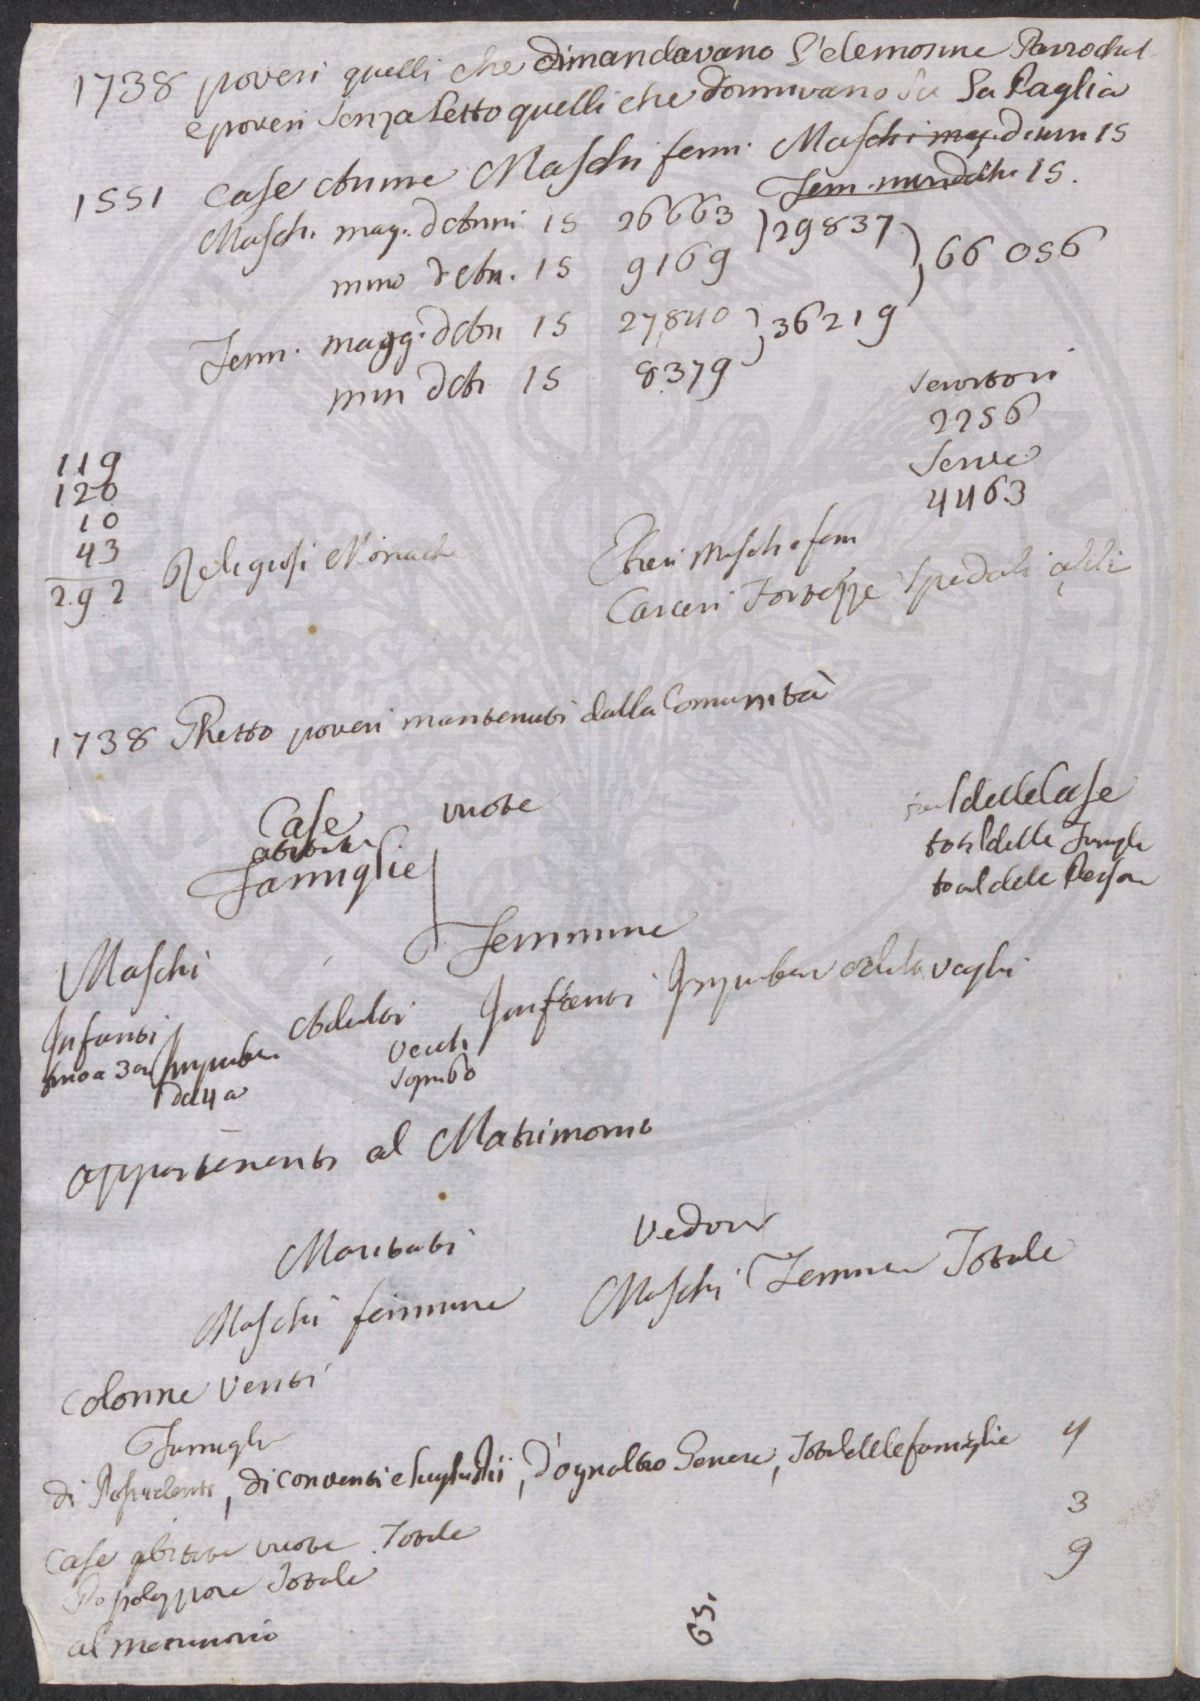 1738 poveri quelli che dimandavano l'elemosine
e poveri senza letto quelli che dormivano su la Paglia
1551 case anime Maschi femi. Maschi mag. d anni 15
fem. 15.
Masch. mag. d anni 15 26663 29837
mino d an. 15 9169 66056
Femi. magg. d an 15 27840 36219
min d an 15 8379
Servitori
2256
Serve
4463
119
120
10
43
292
Religiosi e Monache
Ebrei Maschi e fem
Carceri Fortezze Spedali
1738 Ghetto poveri mantenuti dalla Comunità
Case vuote
abitate
Famiglie
total delle Case
total delle Famigle
total dele Person
Maschi Femmine
Infanti Impuberi Adulti Vechi Infanti Impuberi Adulti vechi
fino a 3 an da 4 a sopra 60
appartenenti al Matrimonio
Maritati Vedovi
Maschi femmine Maschi Femmine Totale
Colonne Venti
Famigle
di Possidenti, di conventi e, d'ognaltro Genere, Total delle famiglie 4
Case abitate vuote Totale 3
Popolazione Totale 9
al matrimonio
65.